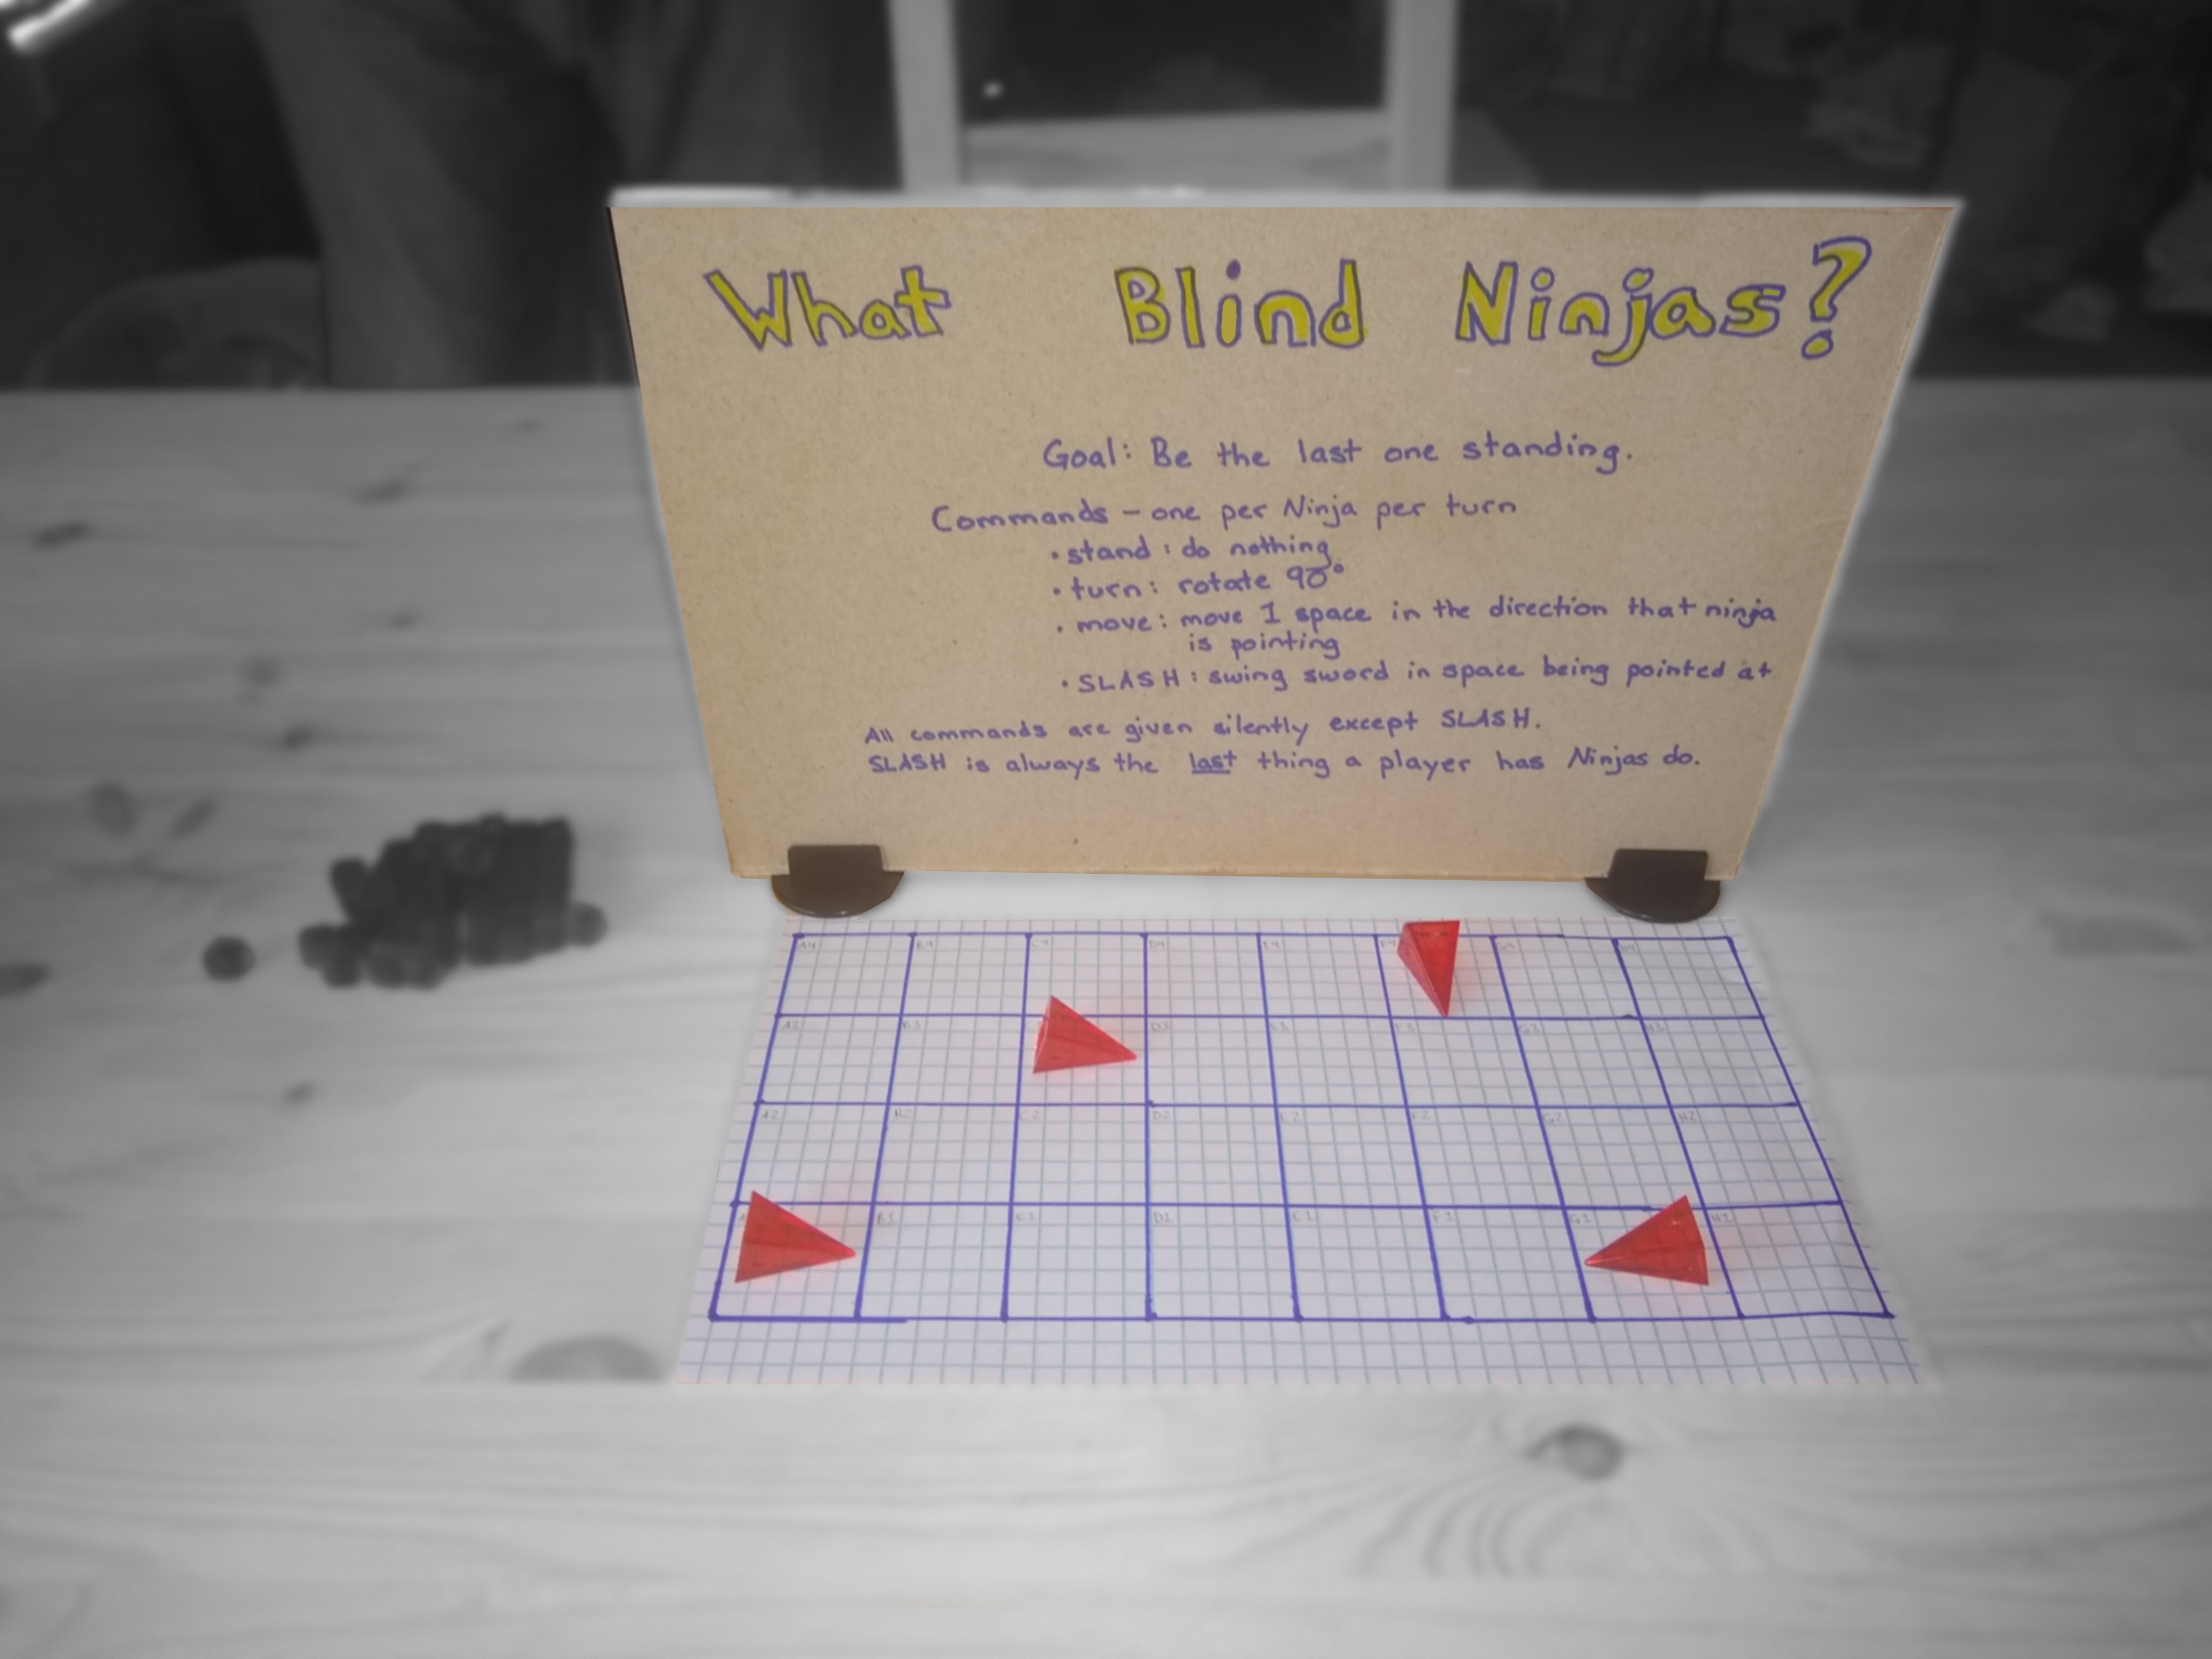 What Blind Ninjas?
Goal: Be the last one standing.
Commands - one per Ninja per turn
• stand: do nothing
• turn: rotate 90°
• move: move 1 space in the direction that ninja
is pointing
• SLASH: swing sword in space being pointed at
All commands are given silently except SLASH.
SLASH is always the last thing a player has Ninjas do.
A4 B4 C4 D4 E4 F4 G4 H4
A3 B3 D3 E3 F3 G3 H3
A2 B2 C2 D2 E2 F2 G2 H2
B1 C1 D1 E1 F1 G1 H1